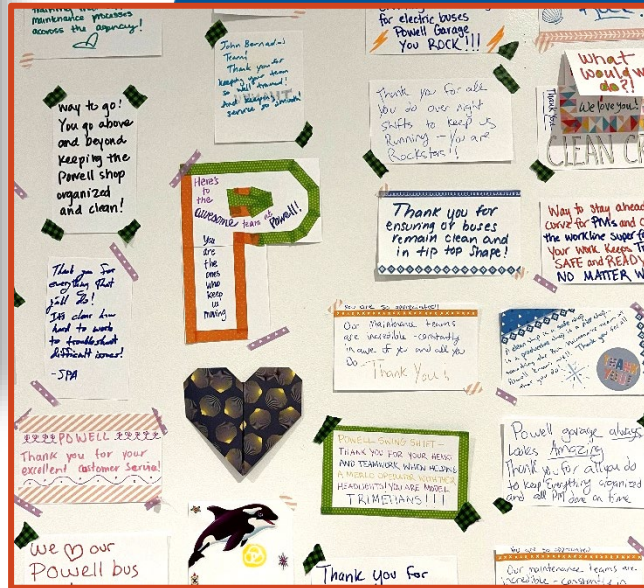 maintenance processes
across the agency!
John Bernadin's
Team!
Thank you for
keeping your team
so well trained!
And keeping
service so
for electric buses
Powell Garage
You ROCK!!!
What
would
do?!
We love you!
Thank you
CLEAN
Way to go!
You go above
and beyond
keeping the
Powell shop
organized
and clean!
Thank you for all
you do over night
shifts to keep us
Running - You are
Rockstars!!
Here's
to
the
awesome team at Powell!
You
are
the
ones
who
keep
us
moving
Thank you for
ensuring our buses
remain clean and
in tip top shape!
Way to stay ahead
curve for PMs and
the workline super
Your work keeps
SAFE and READY
NO MATTER
Thank you for
everything that
y'all do!
It's clear how
hard to work
to troubleshoot
difficult issues!
-SPA
You are so appreciated!
Our maintenance teams
are incredible - constantly
in awe of you and all you
Do -
Thank You!
A clean shop is a safe shop
is a productive shop is a
Thank you for all
POWELL
Thank you for your
excellent customer service!
POWELL SWING SHIFT -
THANK YOU FOR YOUR
AND TEAMWORK WHEN HELPING
A MERLO OPERATOR WITH THEIR
HEADLIGHTS! YOU ARE MODEL
TRIMETIANS!!!
Powell garage always
Looks Amazing
Thank you for all you do
to keep everything organized
and all PM done on time
We our
Powell bus
Thank you for
You are so appreciated
Our maintenance teams are
incredible - constantly in